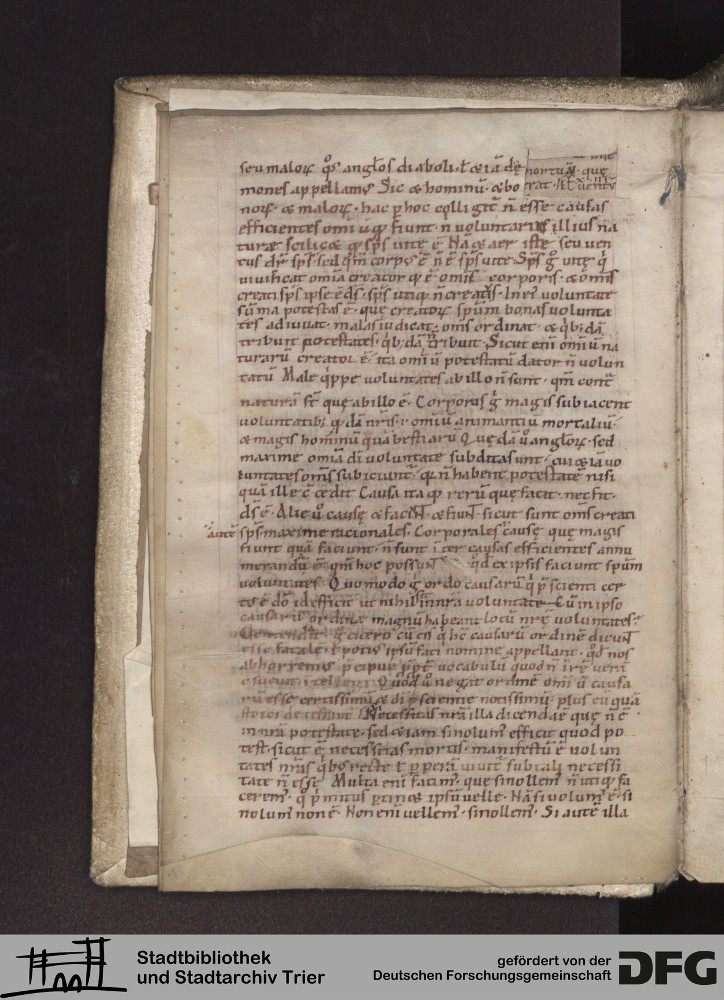 seu malor qs anglos diaboli. ł & iā dę
mones appellamꝰ Sic & hominū. & bo
nor. & malor. hac p hoc colligit n̄ esse causas
efficientes omiū q fiunt. n voluntarias illius na
turæ scilic& q sps uitę ē Nā & aer iste seu ven
tus dr sps. sed qm corpꝰ ē n̄ ē sps uite Sps g uitę q
uiuificat omia creator q ē omis corporis. & omis
creati sps ipse ē ds. sps utiq n creatus. In ei voluntate
sūma potestas ē. que creator spūm bonas volunta
tes adiuuat. malas iudicat. omis ordinat. & qbꝰdā
tribuit potestates. qbꝰdā n̄ tribuit. Sicut eni omiū na
turarū creator ē. ita omiū potestatū dator n̄ volun
tatū Male qppe voluntates ab illo n̄ sunt. qm cont
naturā st quę ab illo ē. Corporus g magis subiacent
voluntatibꝰ qdā nris. i. omiū animantiū mortaliū.
& magis hominū quā bestiarū Quędā ū anglor. sed
maxime omia di voluntate subdita sunt. cui & iā vo
luntates omis subiciunt. q n habent potestatē nisi
quā ille c̄cedit Causa itaq rerū quę facit. nec fit.
ds ē. Alię ū causę & faciunt & fiunt. sicut sunt oms creati
sps. maxime racionales. Corporales autē causę. quę magis
fiunt quā faciunt. n̄ sunt int causas efficientes annu
merandū ē. qm hoc possunt qd ex ipsis faciunt spūm
voluntates Quomodo g ordo causarū q pscienti cer
tꝰ ē dō id efficit ut nihil sit in nra voluntate. cū in ipso
causarū ordine magnū habeant locū nrę voluntates?
Contendat g cicero cū eis q hc causarū ordinē dicunt
esse fatale. ł potiꝰ ipsū fati nomine appellant. qd nos
abhorremꝰ pcipue ppt vocabulū quod n̄ i re vera
csueuit itelligi Quod ū negat ordinē omiū causa
rū esse certissimū & di pscientię notissimū. plus eū quā
stoici detestamꝰ Necessitas nra illa dicenda ē quę n̄ ē
in nra potestate. sed & iam si nolum efficit quod po
test. sicut ē necessitas mortis. manifestū ē volun
tates nras qbꝰ recte ł pperā viuit sub tali necessi
tate n̄ esse Multa eni facim. que si nollem n̄ utiq fa
cerem. q pmitus ptin& ipsū velle. Nā si volum ē. si
nolum non ē. Non eni vellem. si nollem. Si autē illa
Stadtbibliothek
und Stadtarchiv Trier
gefördert von der
Deutschen Forschungsgemeinschaft
DFG